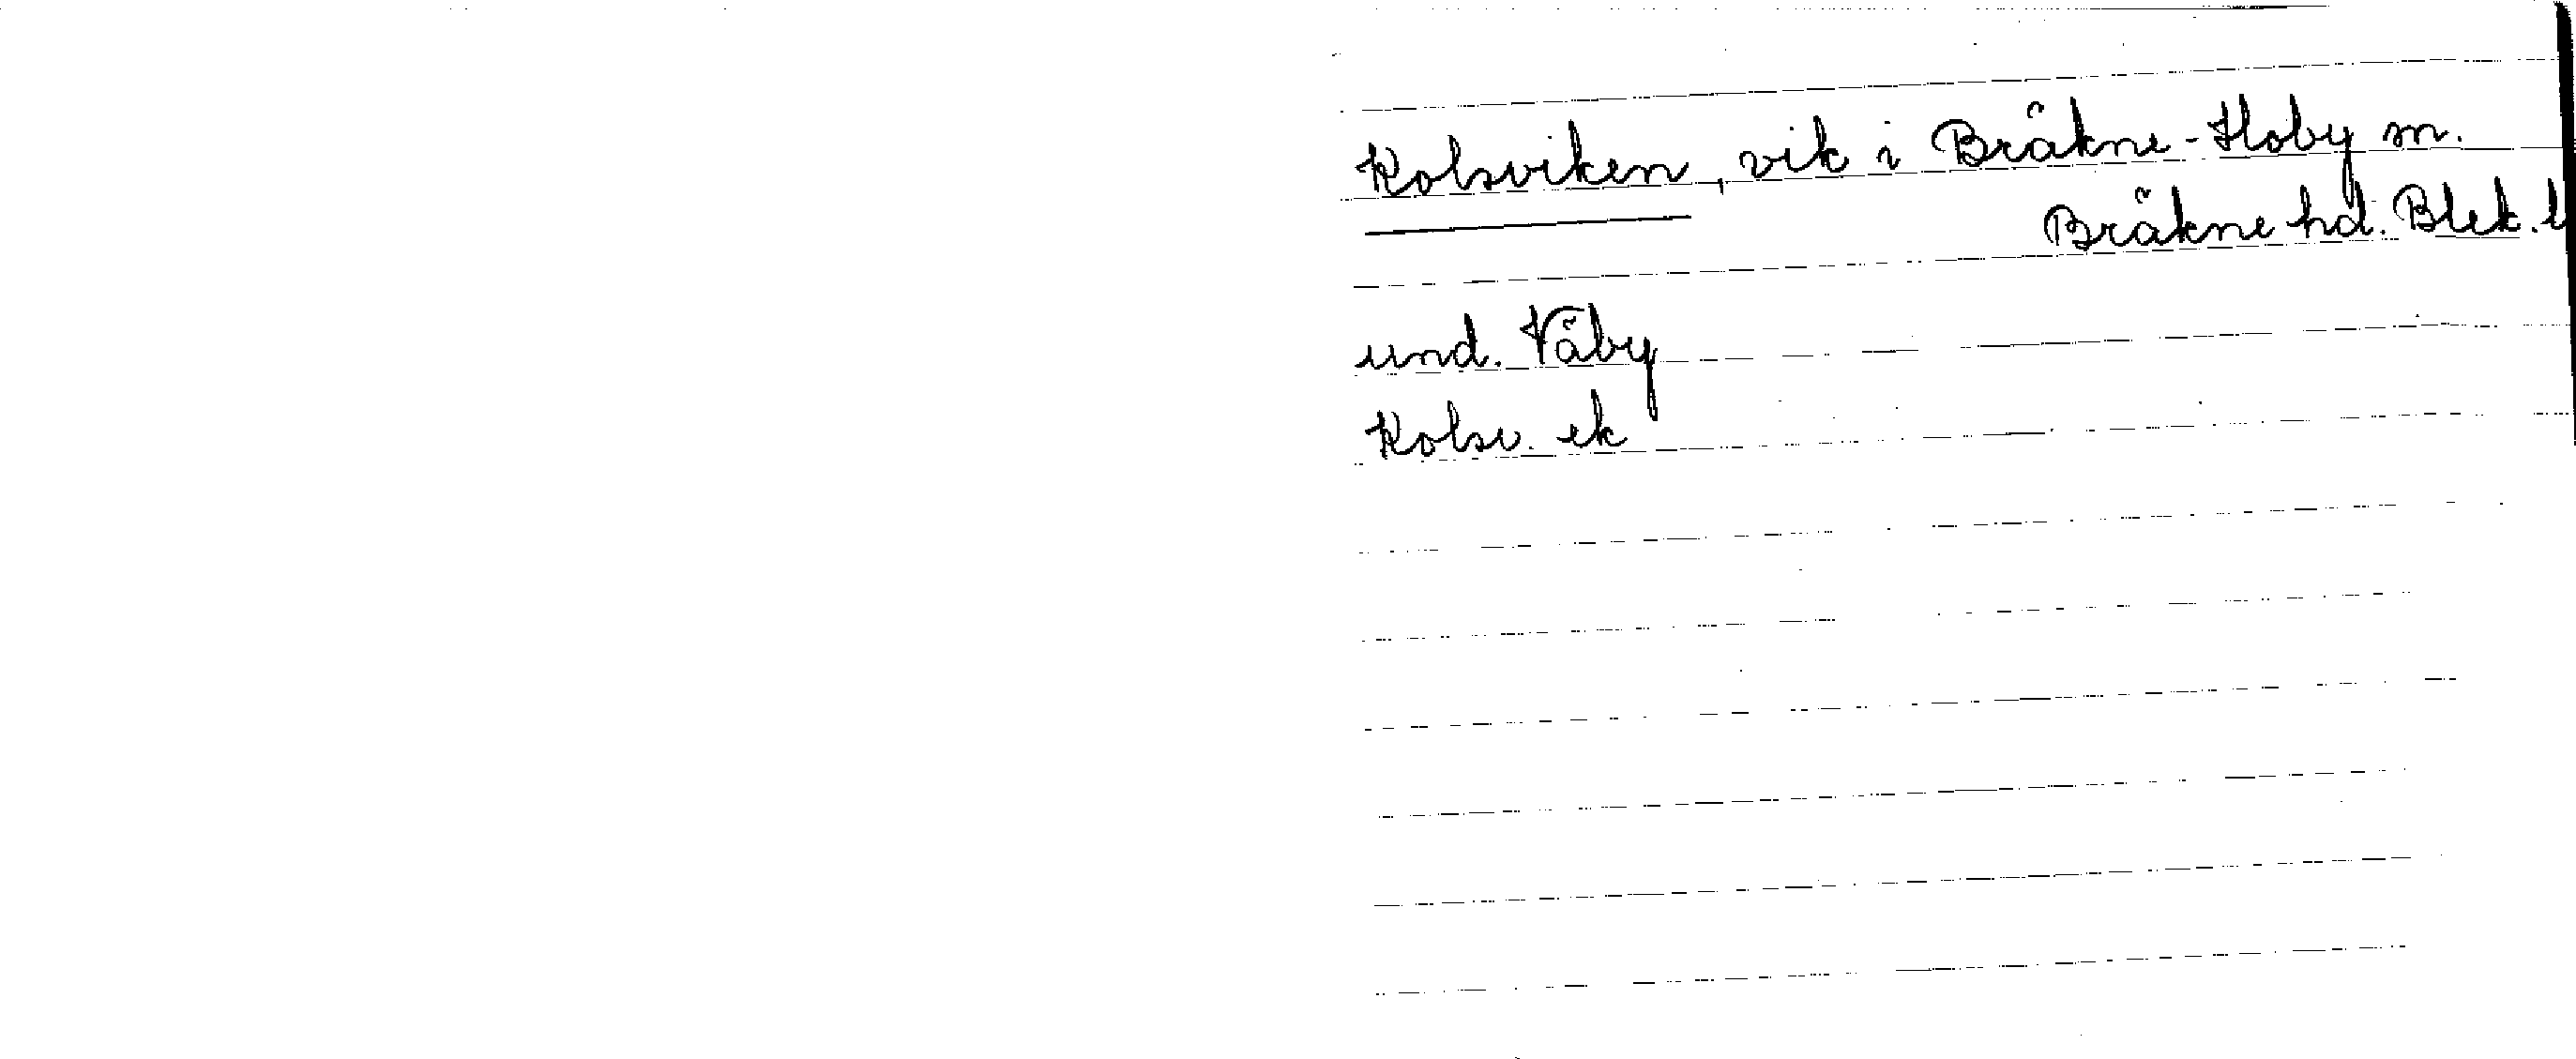 Kolsviken, vik i Bräkne-Hoby sn.
Bräkne hd. Blek. l
und. Väby
Kolsv. ek